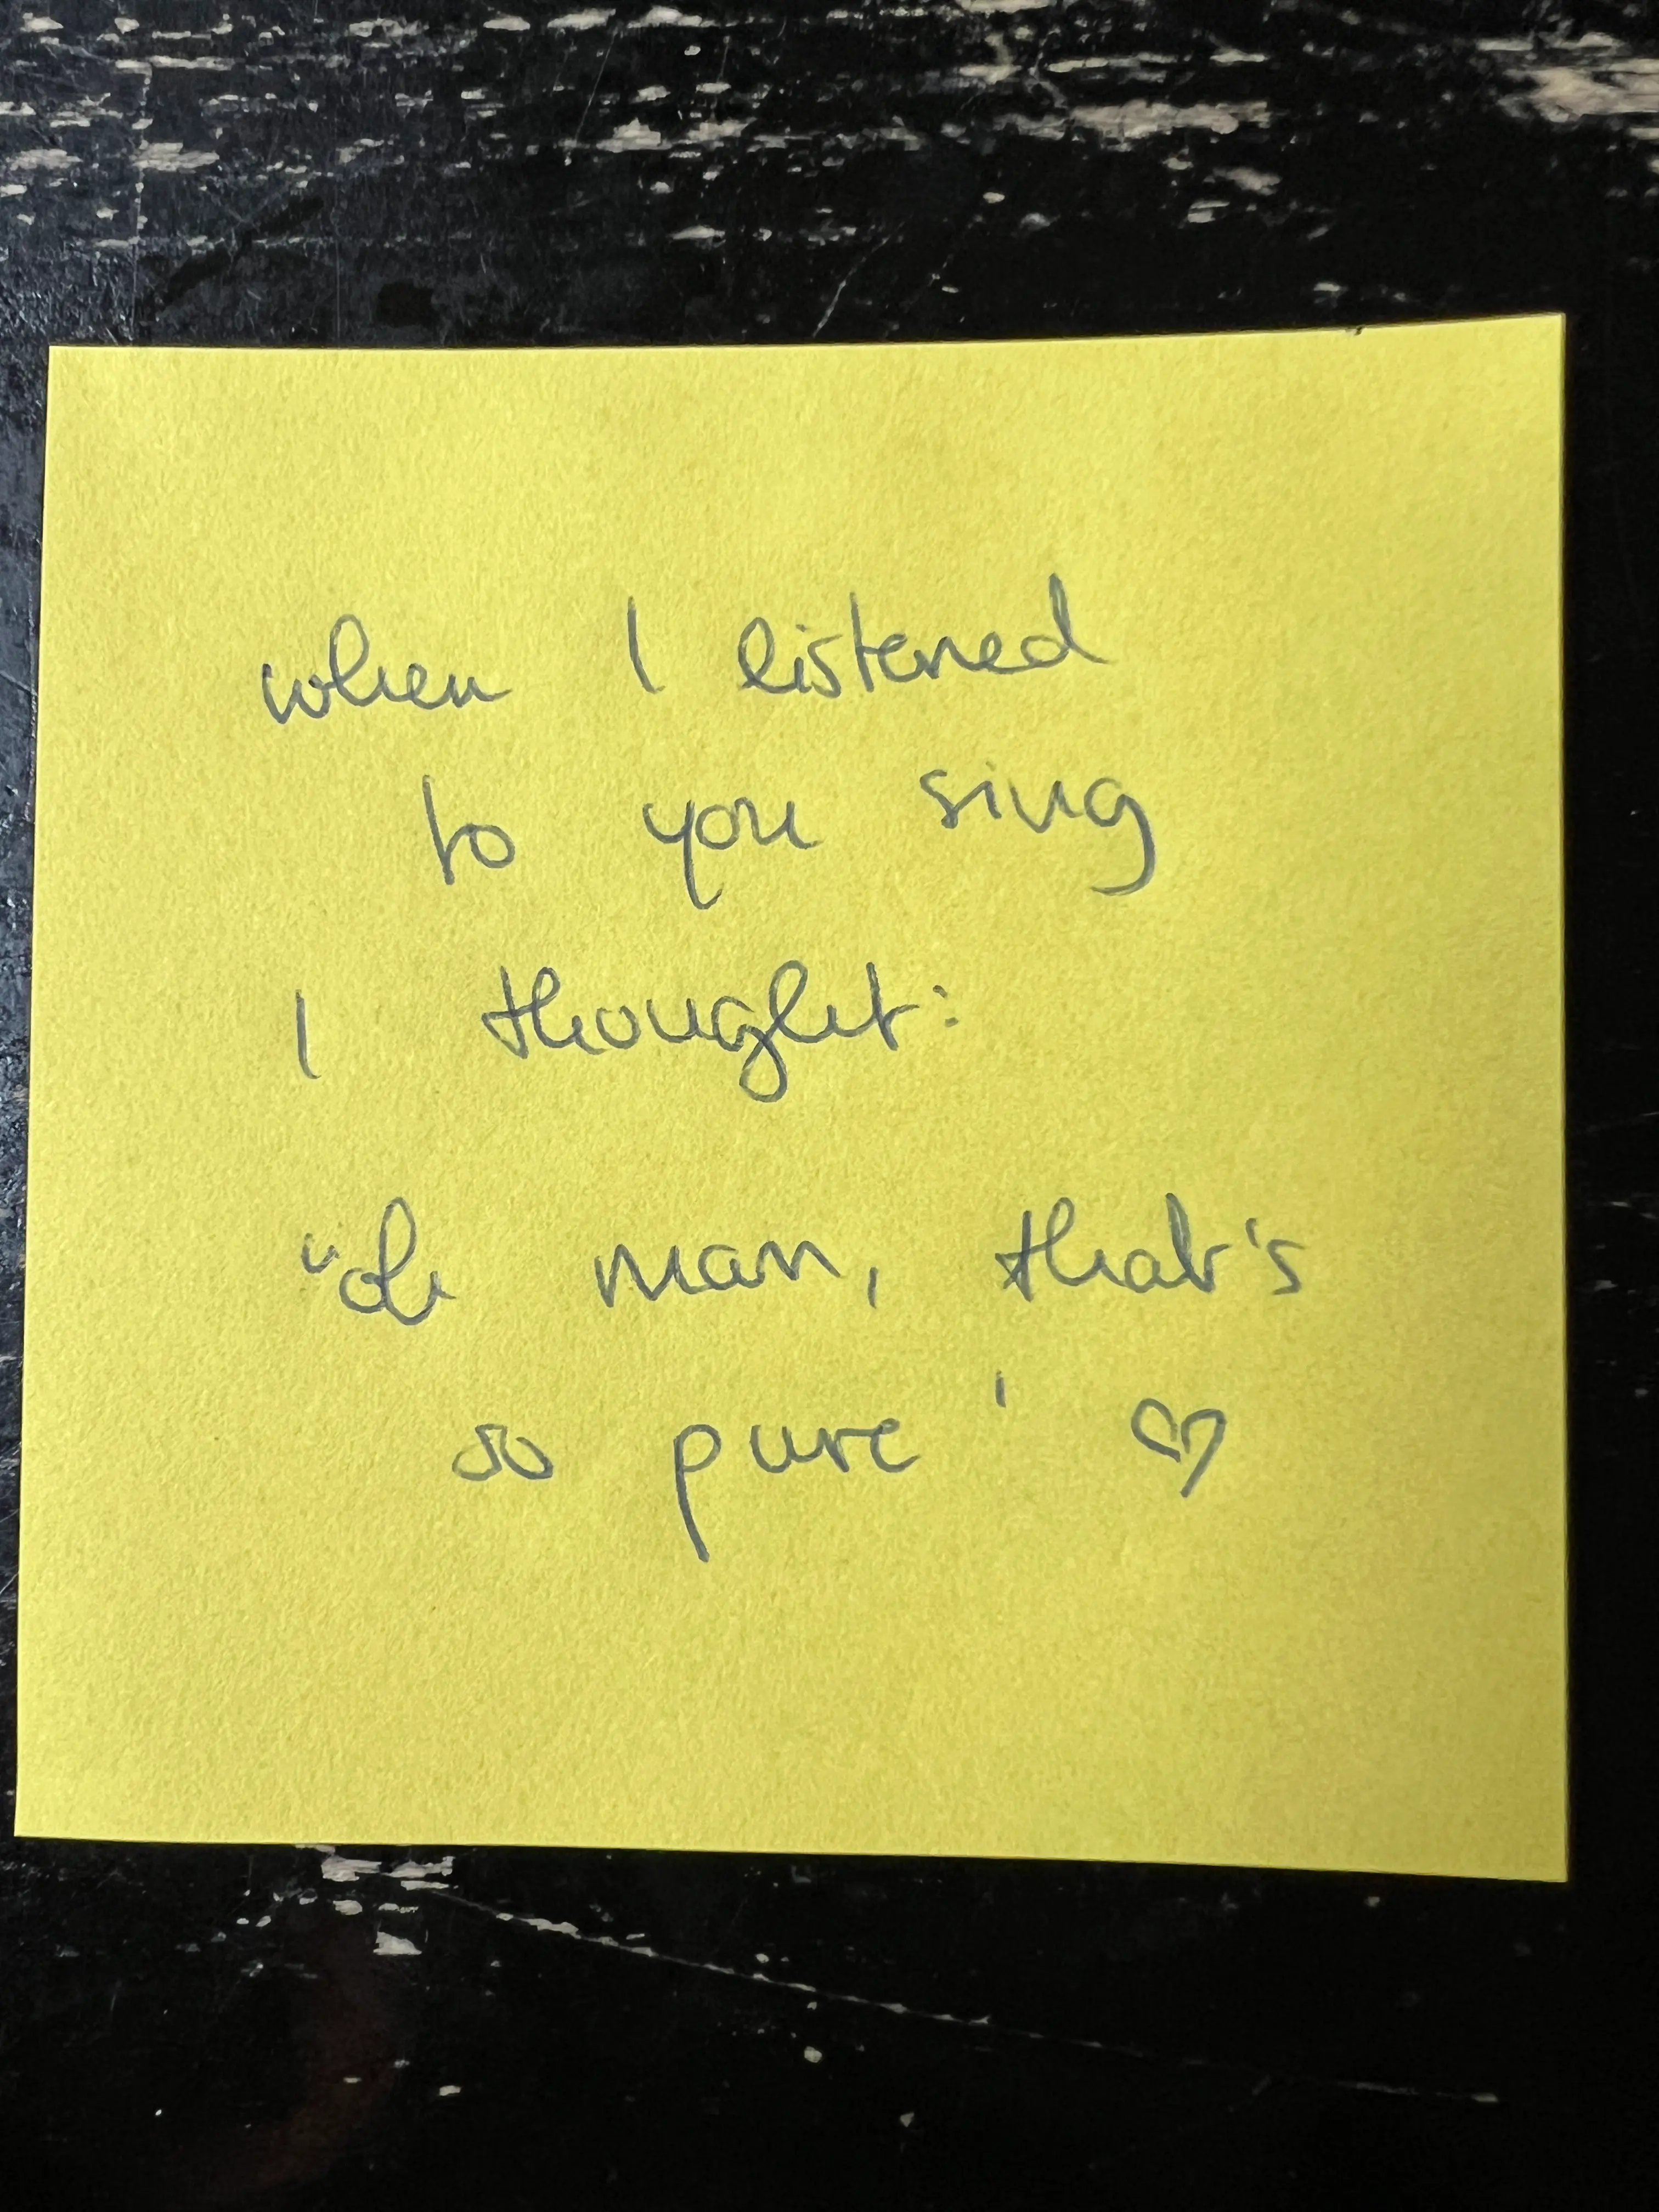 when I listened
to you sing
I thought:
"oh man, that's
so pure' ♡